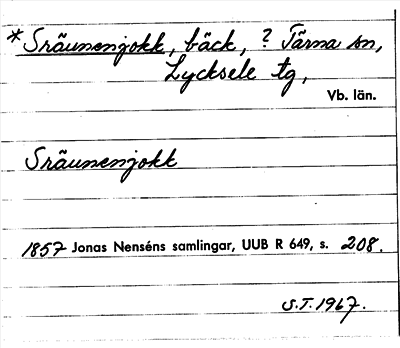 * Sräunenjokk, bäck, ? Tärna sn,
Lycksele tg,
Vb. län.
Sräunenjokk
1857 Jonas Nenséns samlingar, UUB R 649, s. 208.
S.T. 1967.